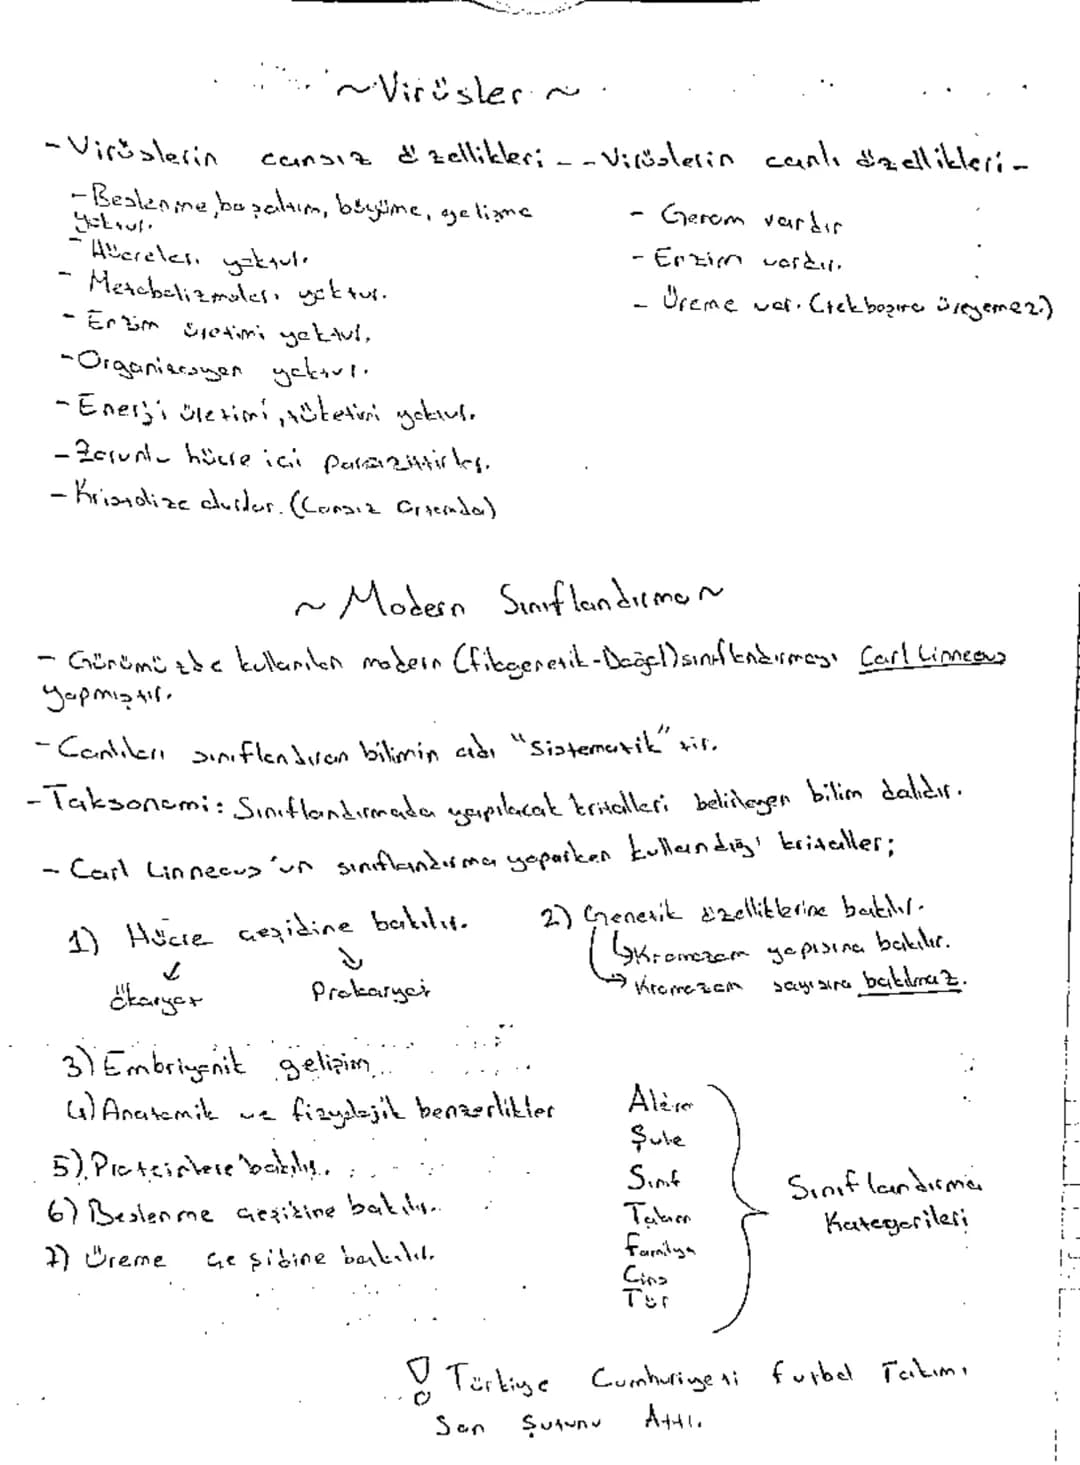 ~Virüsler~
-Virüslerin cansız özellikleri-
-Beslenme, boşaltım, büyüme, gelişme
yoktur.
-Hücreleri yoktur.
-Metabolizmaları yoktur.
-Enzim üretimi yoktur.
-Organizasyon yoktur.
-Enerji üretimi, tüketimi yoktur.
-Zorunlu hücre içi parazittirler.
-Kristalize olurlar. (Cansız Ortamda)
-Virüslerin canlı özellikleri-
- Genom vardır
- Enzim vardır.
- Üreme var. (tek başına üreyemez.)
~ Modern Sınıflandırma ~
- Günümüzde kullanılan modern (filogenetik-Doğal) sınıflandırmayı Carl Linneaus
yapmıştır.
-Canlıları sınıflandıran bilimin adı "Sistematik" tir.
-Taksonomi: Sınıflandırmada yapılacak kriterleri belirleyen bilim dalıdır.
- Carl Linneaus'un sınıflandırma yaparken kullandığı kriterler;
1) Hücre çeşidine bakılır.
Ökaryot Prokaryot
2) Genetik özelliklerine bakılır.
Kromozom yapısına bakılır.
Kromozom sayısına bakılmaz.
3) Embriyonik gelişim
4) Anatomik ve fizyolojik benzerlikler
5) Proteinlere bakılır.
6) Beslenme çeşidine bakılır.
7) Üreme çeşidine bakılır.
Alem
Şube
Sınıf
Takım
Familya
Cins
Tür
Sınıflandırma
Kategorileri
! Türkiye Cumhuriyeti Futbol Takımı
Son Şutunu Attı.